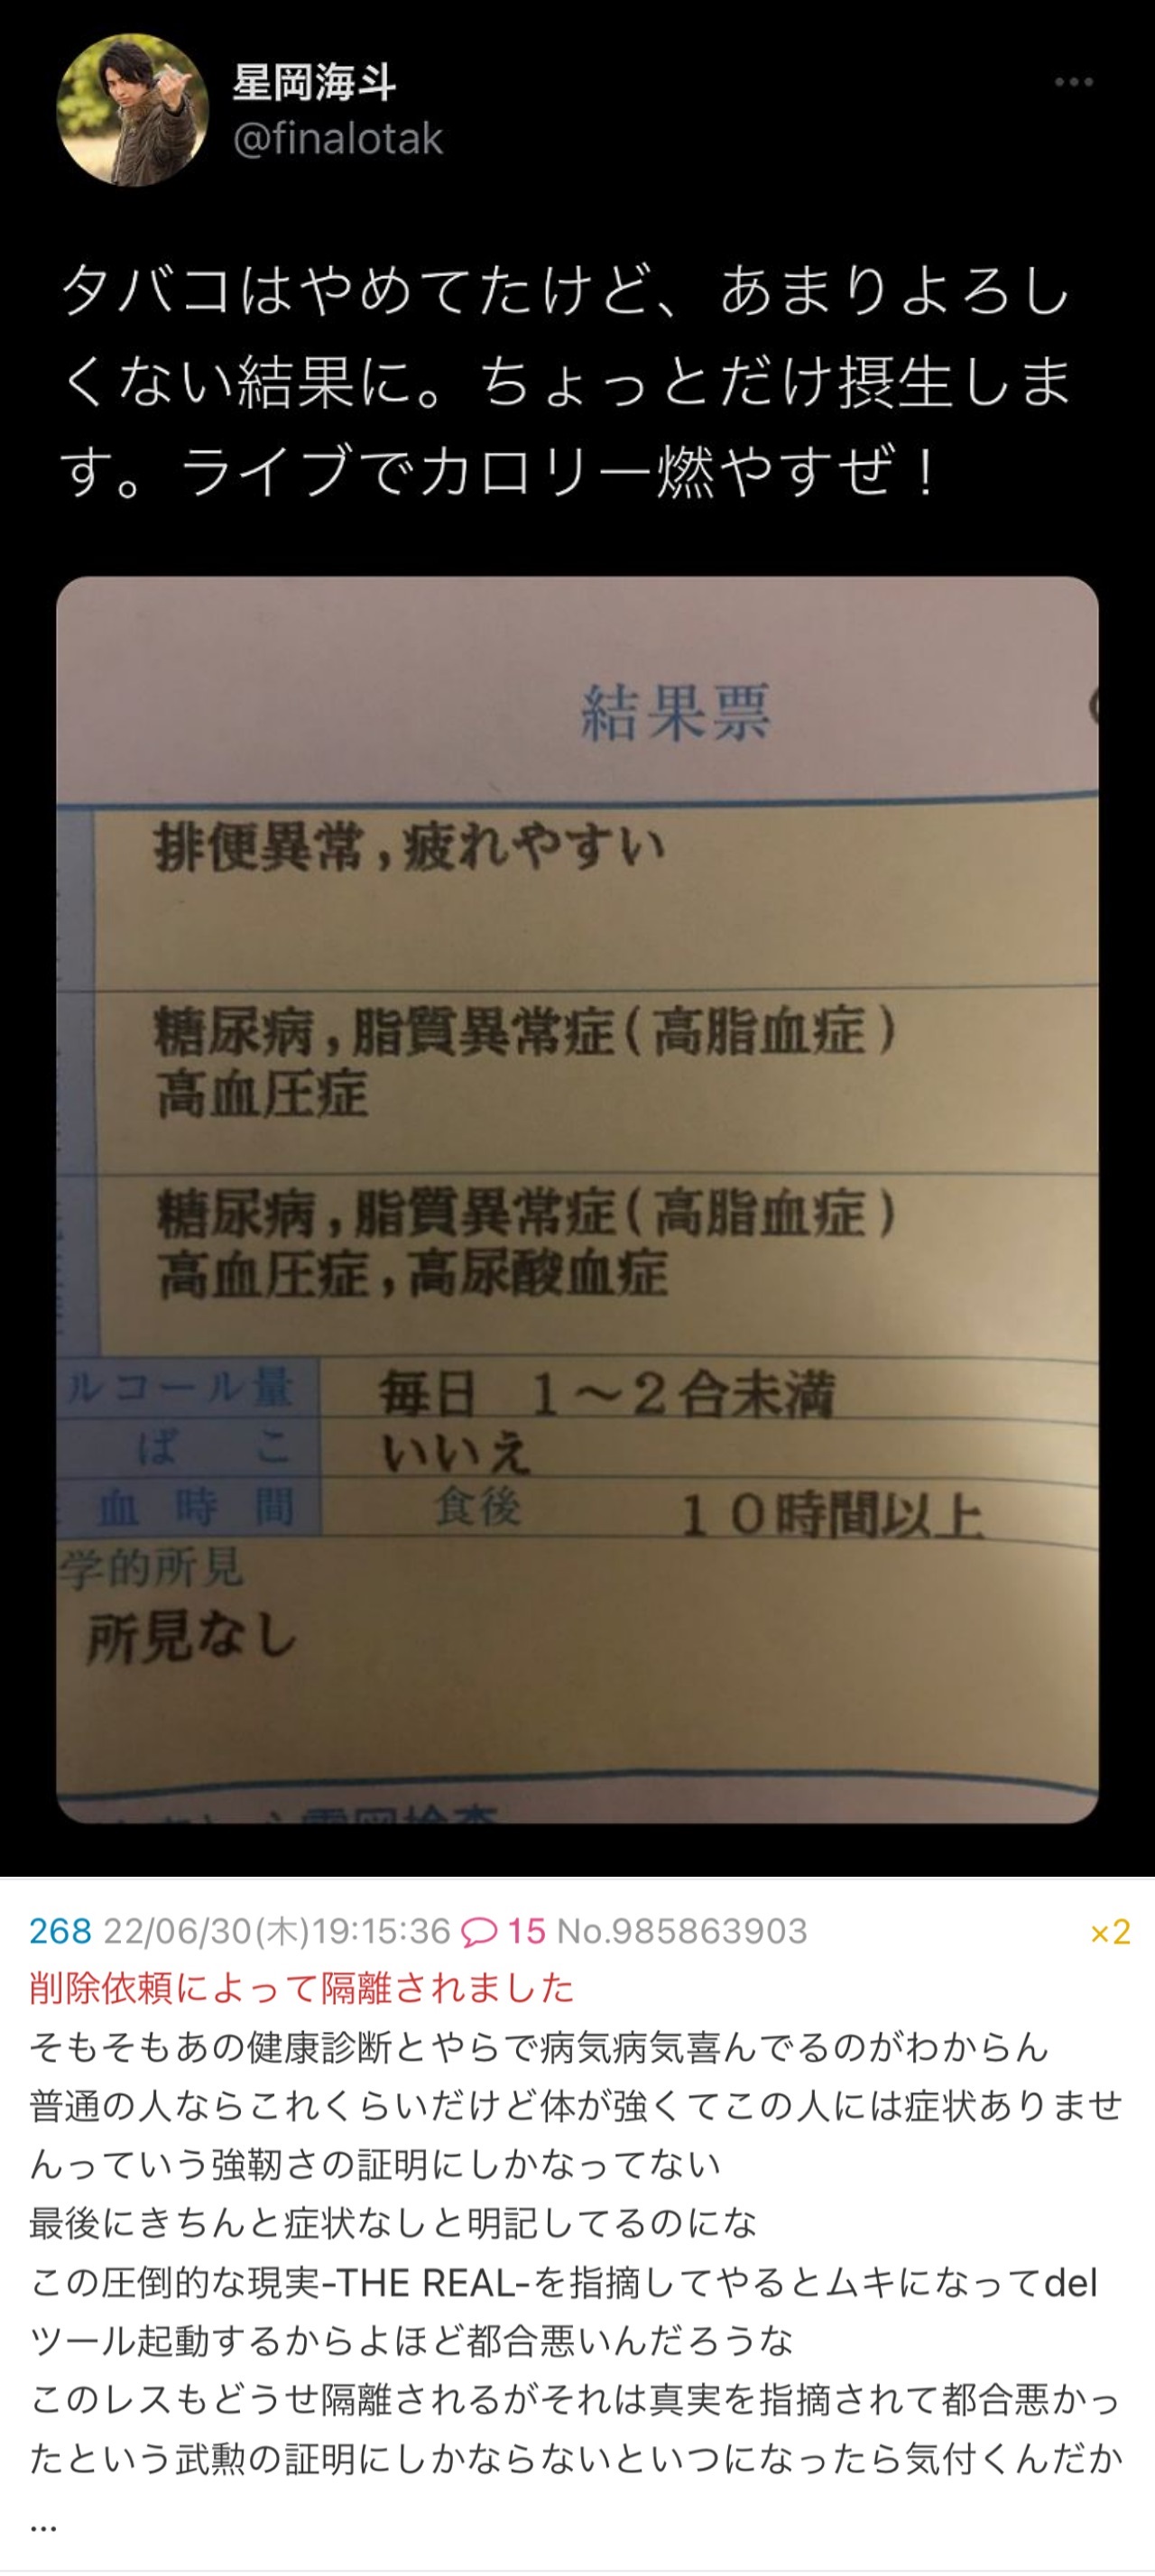 星岡海斗
@finalotak
タバコはやめてたけど、あまりよろし
くない結果に。ちょっとだけ摂生しま
す。ライブでカロリー燃やすぜ！
結果票
排便異常,疲れやすい
糖尿病,脂質異常症(高脂血症)
高血圧症
糖尿病,脂質異常症(高脂血症)
高血圧症,高尿酸血症
ルコール量 毎日 1～2合未満
ばこ いいえ
血時間 食後 10時間以上
学的所見
所見なし
268 22/06/30(木)19:15:36 15 No.985863903 ×2
削除依頼によって隔離されました
そもそもあの健康診断とやらで病気病気喜んでるのがわからん
普通の人ならこれくらいだけど体が強くてこの人には症状ありませ
んっていう強靭さの証明にしかなってない
最後にきちんと症状なしと明記してるのにな
この圧倒的な現実-THE REAL-を指摘してやるとムキになってdel
ツール起動するからよほど都合悪いんだろうな
このレスもどうせ隔離されるがそれは真実を指摘されて都合悪かっ
たという武勲の証明にしかならないといつになったら気付くんだか
…